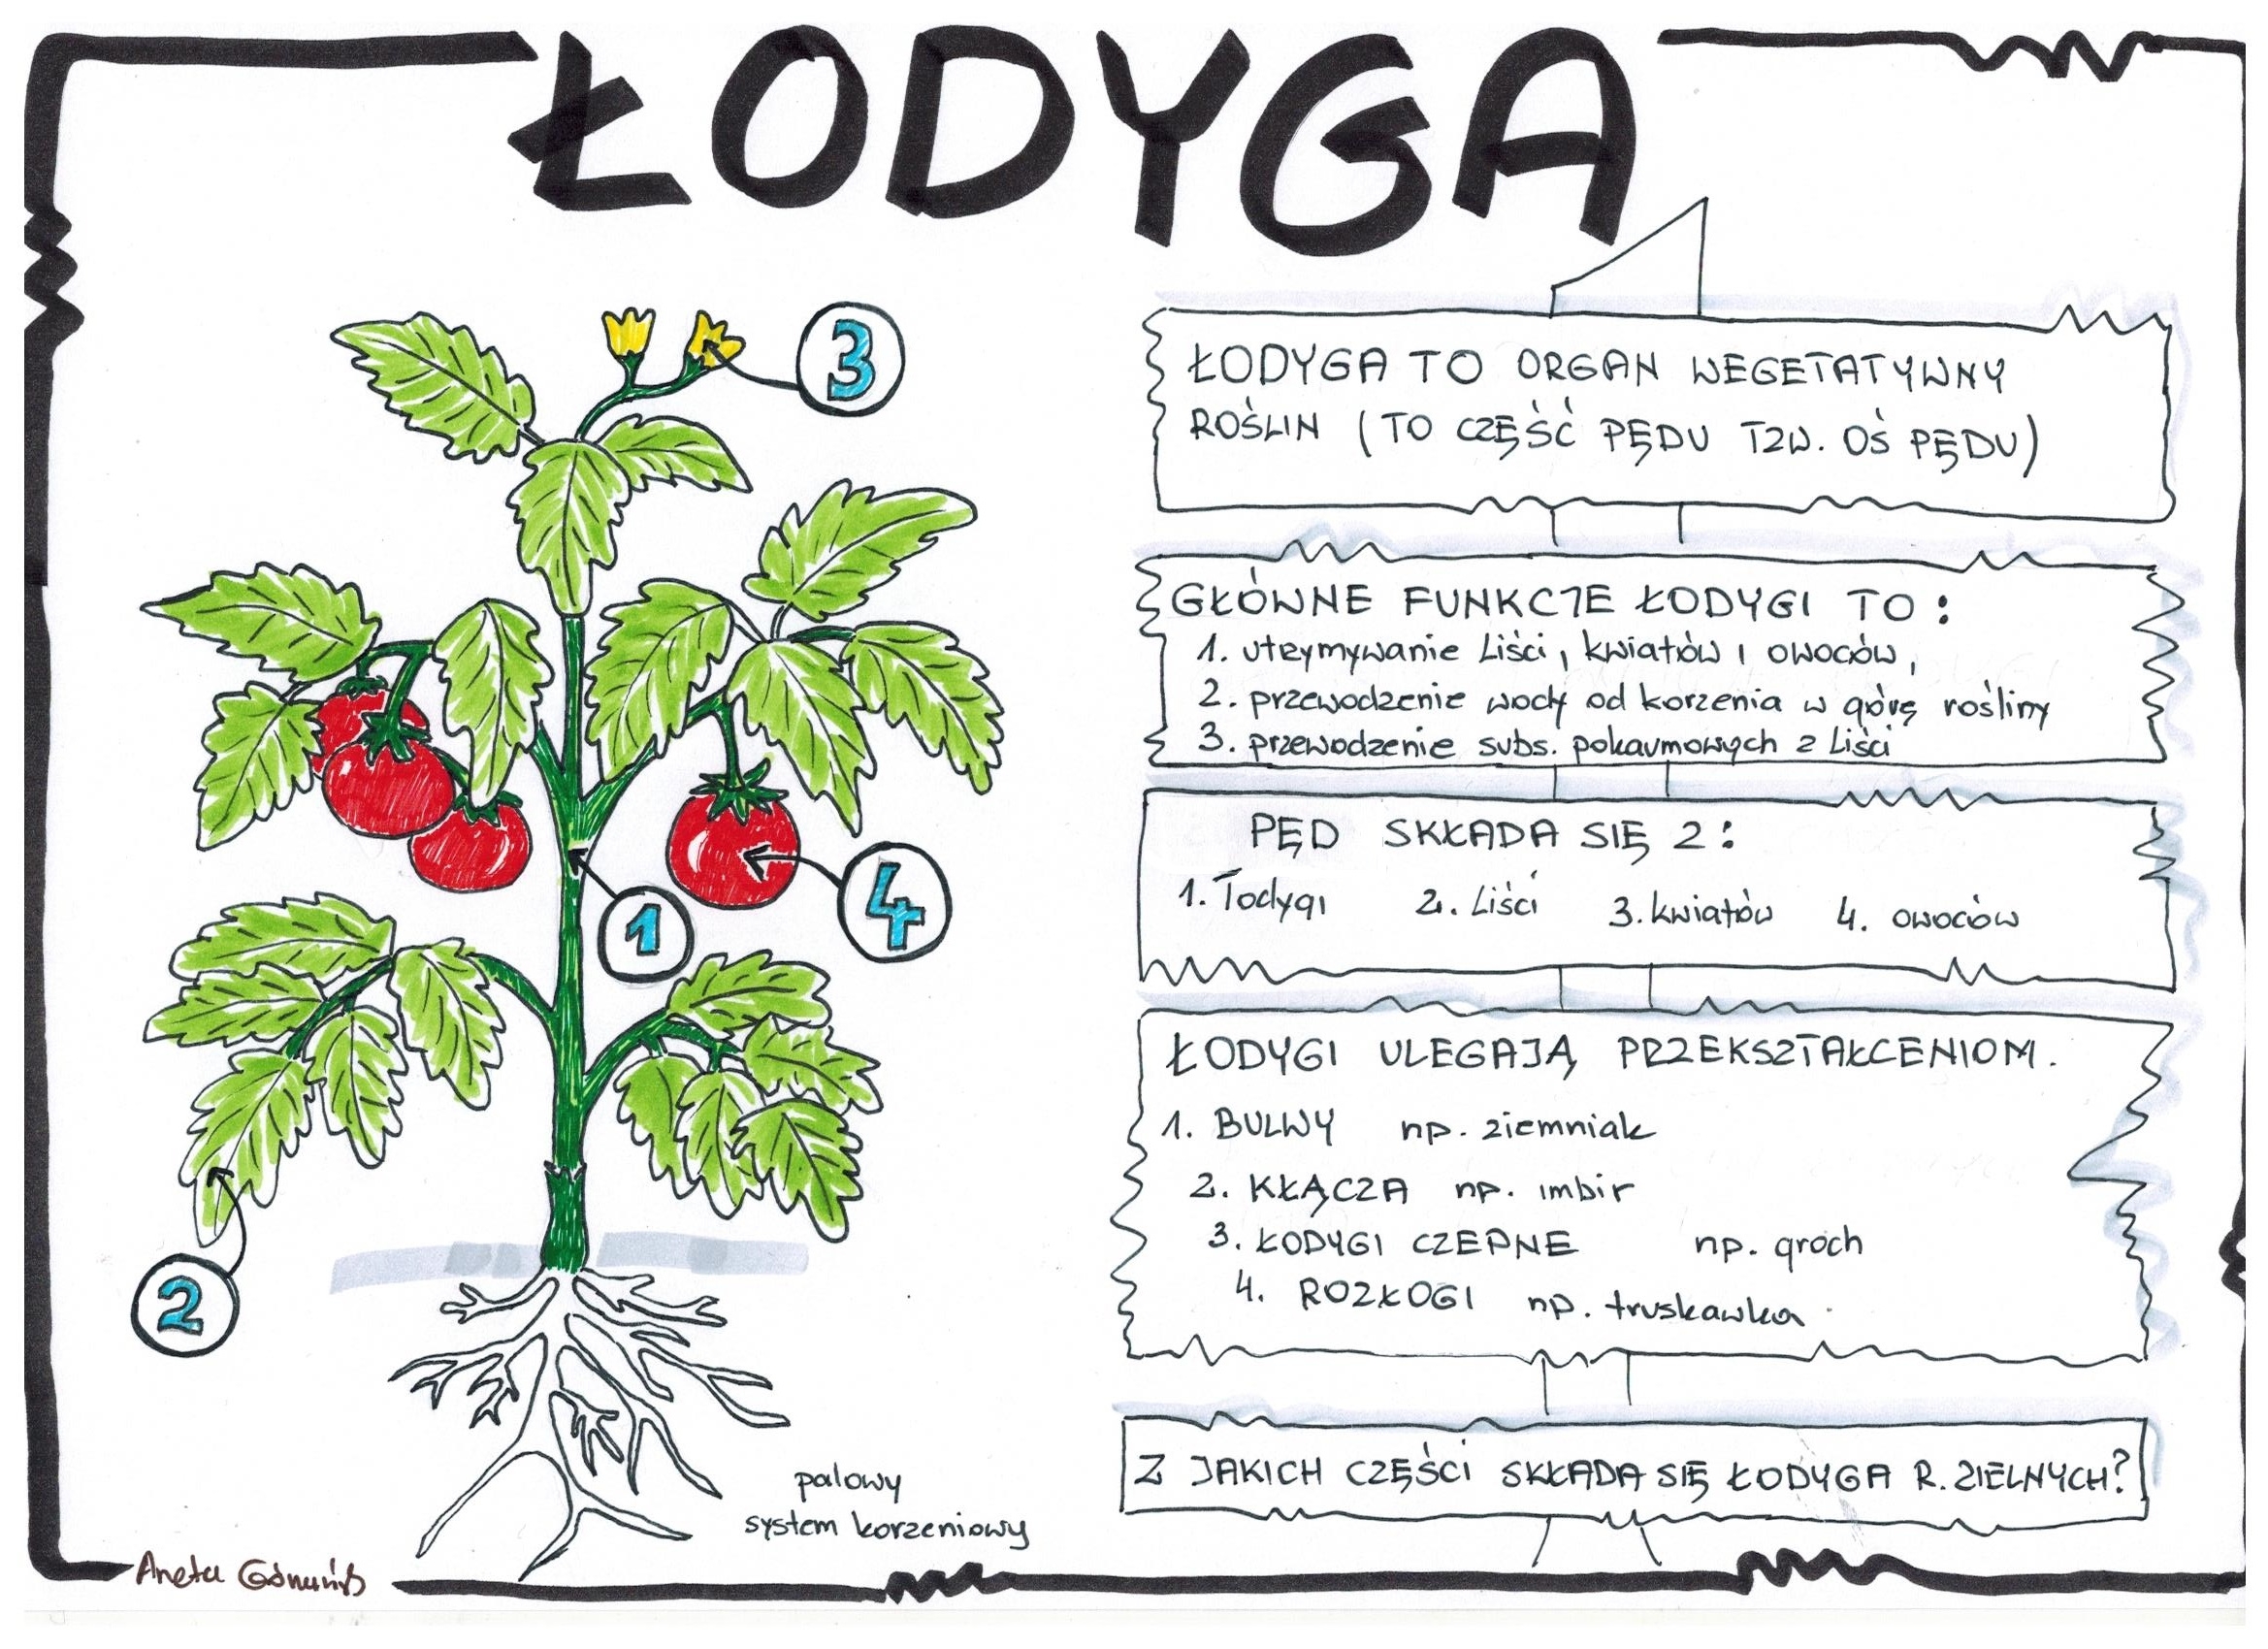 ŁODYGA
3
4
1
2
palowy
system korzeniowy
ŁODYGA TO ORGAN WEGETATYWNY
ROŚLIN (TO CZĘŚĆ PĘDU TZW. OŚ PĘDU)
GŁÓWNE FUNKCJE ŁODYGI TO:
1. utrzymywanie liści, kwiatów i owoców,
2. przewodzenie wody od korzenia w górę rośliny
3. przewodzenie subs. pokarmowych z liści
PĘD SKŁADA SIĘ Z:
1. łodygi 2. liści 3. kwiatów 4. owoców
ŁODYGI ULEGAJĄ PRZEKSZTAŁCENIOM.
1. BULWY np. ziemniak
2. KŁĄCZA np. imbir
3. ŁODYGI CZEPNE np. groch
4. ROZŁOGI np. truskawka.
Z JAKICH CZĘŚCI SKŁADA SIĘ ŁODYGA R. ZIELNYCH?
Aneta